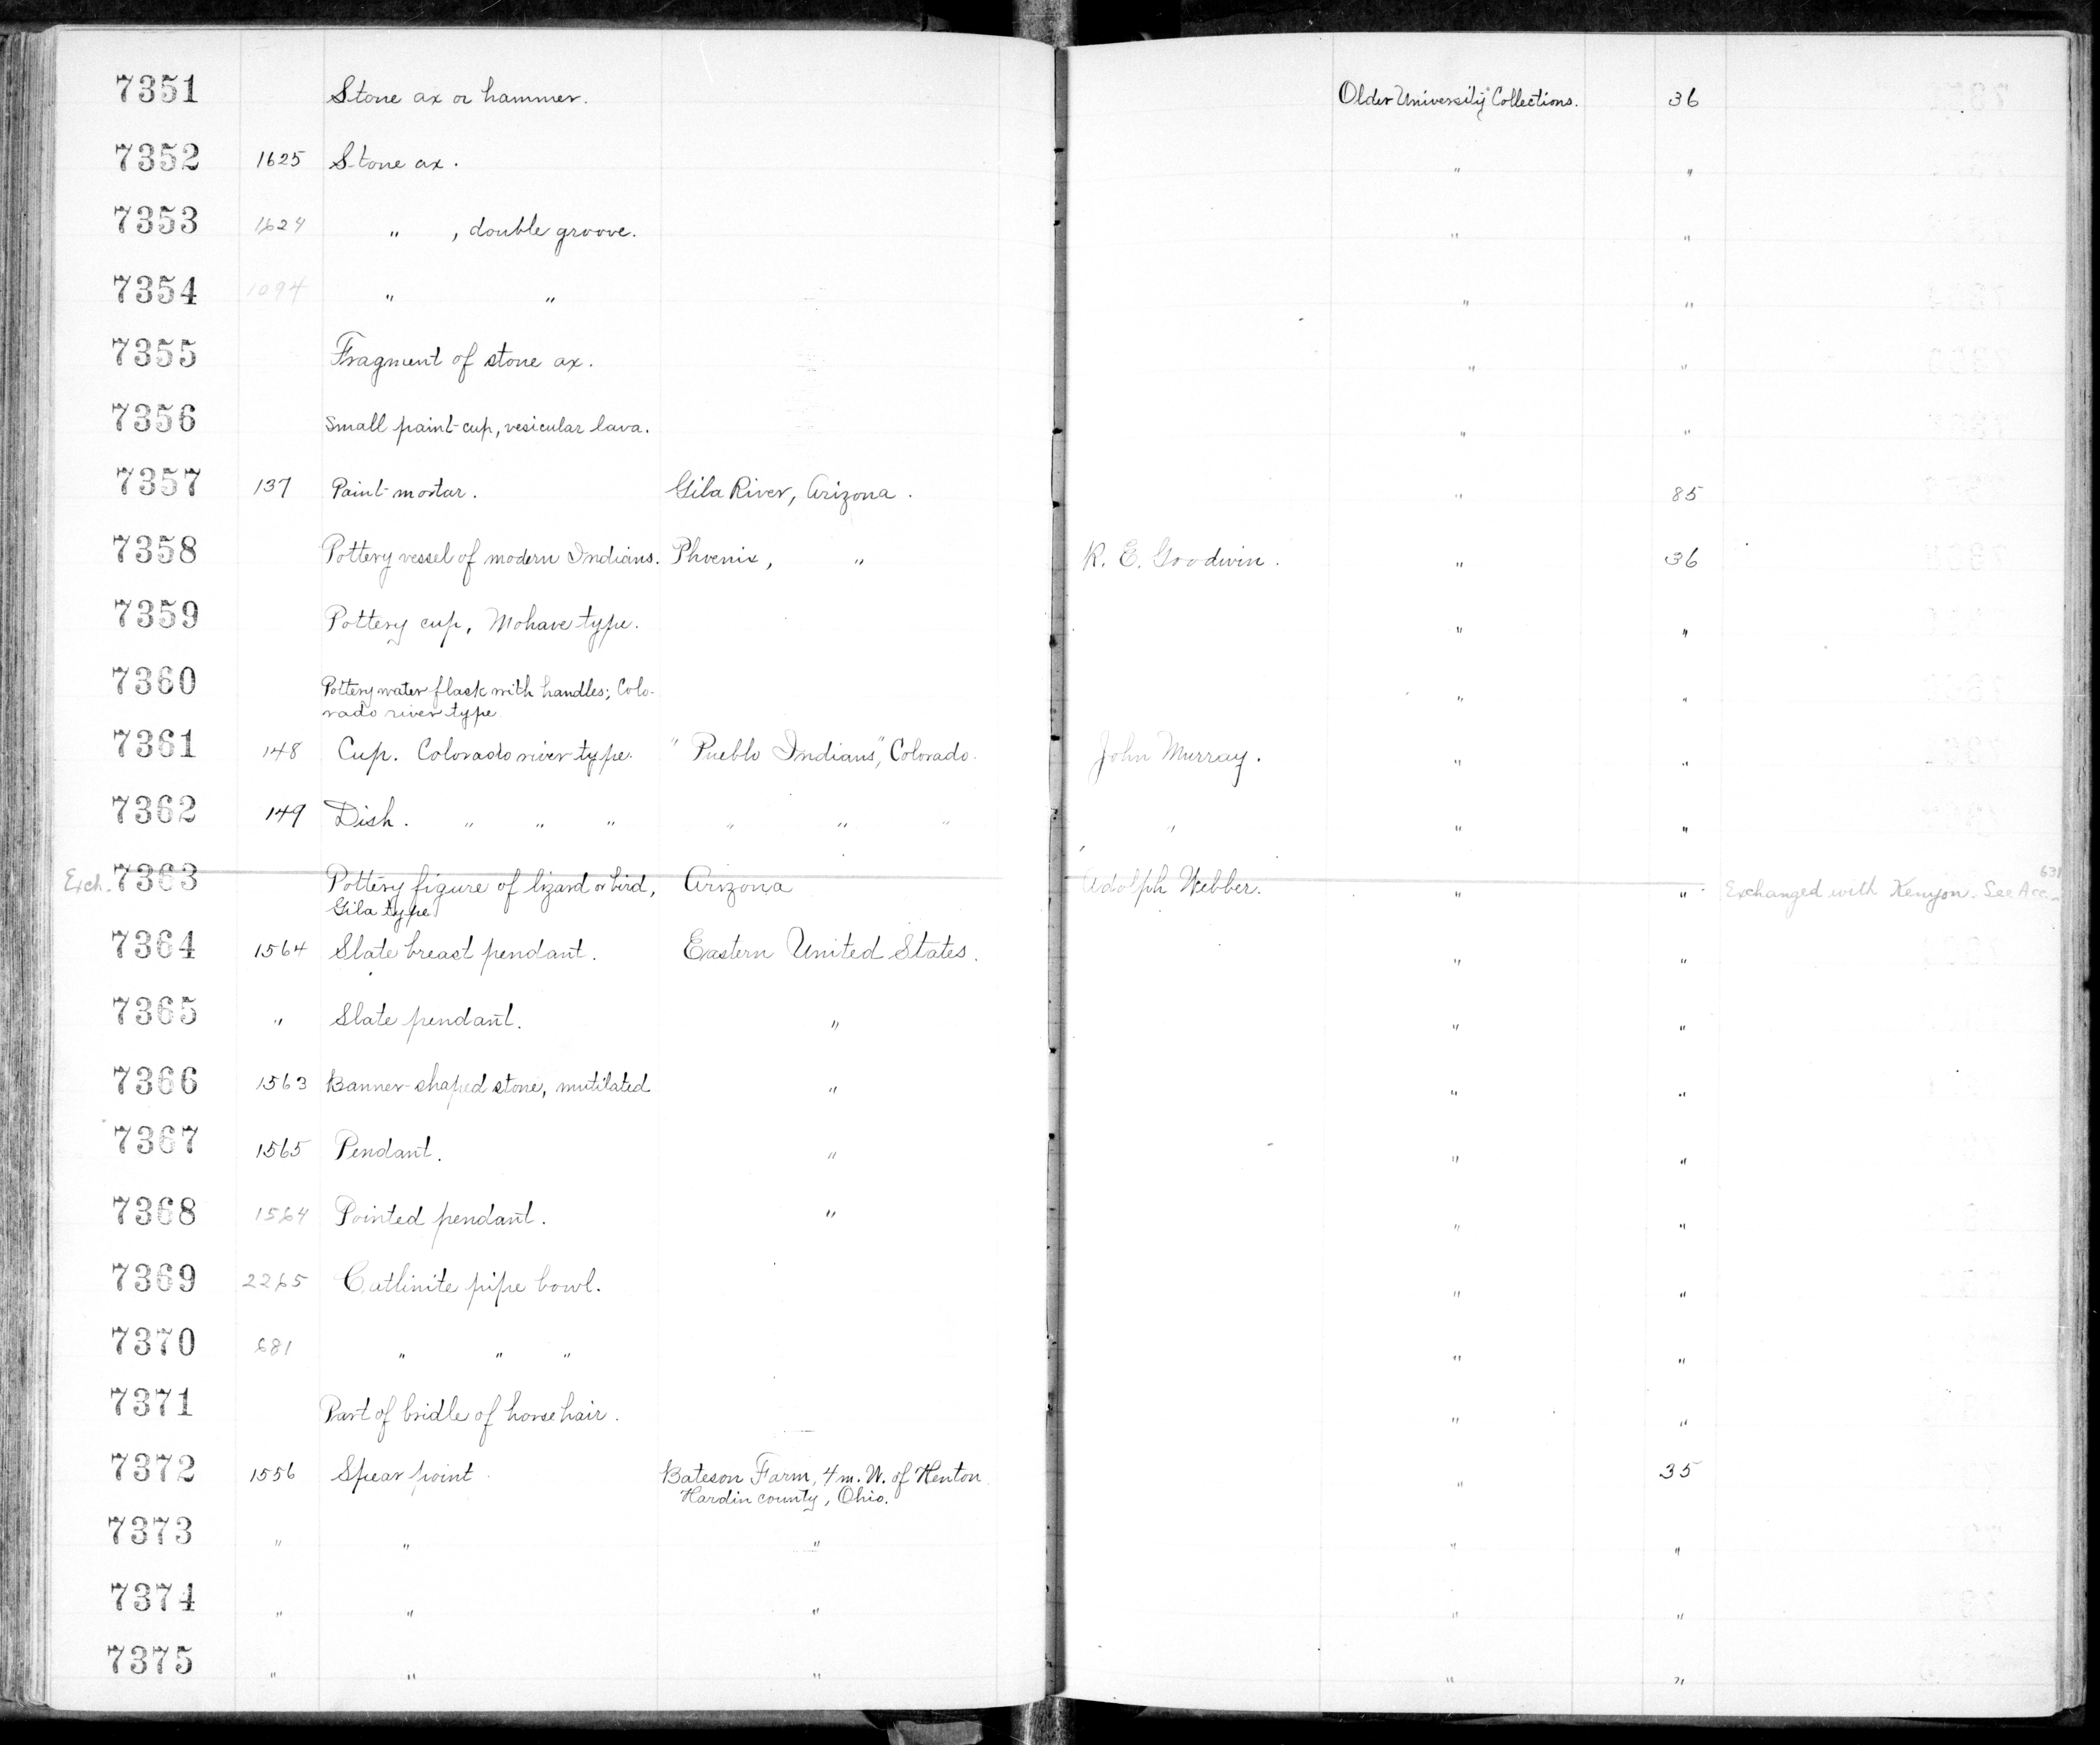 7351 Stone ax or hammer. Older University Collections. 36
7352 1625 Stone ax. " "
7353 1624 " , double groove. " "
7354 1094 " " " "
7355 Fragment of stone ax. " "
7356 Small paint-cup, vesicular lava. " "
7357 137 Paint-mortar. Gila River, Arizona. " 85
7358 Pottery vessel of modern Indians. Phoenix, " R. E. Goodwin. " 36
7359 Pottery cup, Mohave type. " "
7360 Pottery water flask with handles; Colo-
rado river type " "
7361 148 Cup. Colorado river type. "Pueblo Indians", Colorado. John Murray. " "
7362 149 Dish. " " " " " " " " "
Exch. 7363 Pottery figure of lizard or bird, Arizona Adolph Webber. " " Exchanged with Kenyon. See Acc. 631
Gila type
7364 1564 Slate breast pendant. Eastern United States. " "
7365 " Slate pendant. " " "
7366 1563 Banner-shaped stone, mutilated " " "
7367 1565 Pendant. " " "
7368 1564 Pointed pendant. " " "
7369 2265 Catlinite pipe bowl. " "
7370 681 " " " " "
7371 Part of bridle of horsehair. " "
7372 1556 Spear point. Bateson Farm, 4 m. W. of Kenton " 35
Hardin county, Ohio.
7373 " " " " "
7374 " " " " "
7375 " " " " "